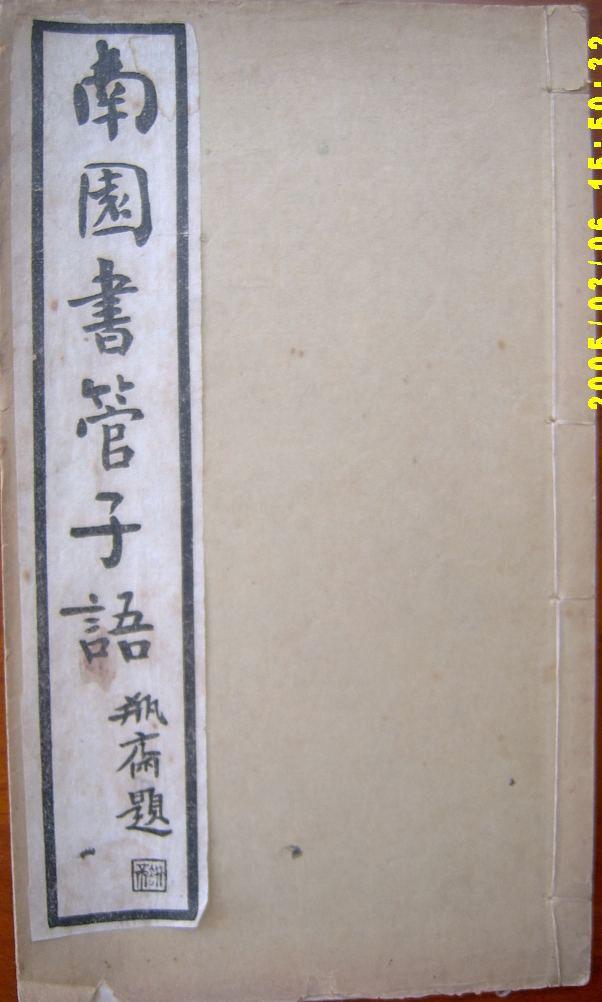 南園書管子語
瓶齋題
2005/03/06 15:50:32